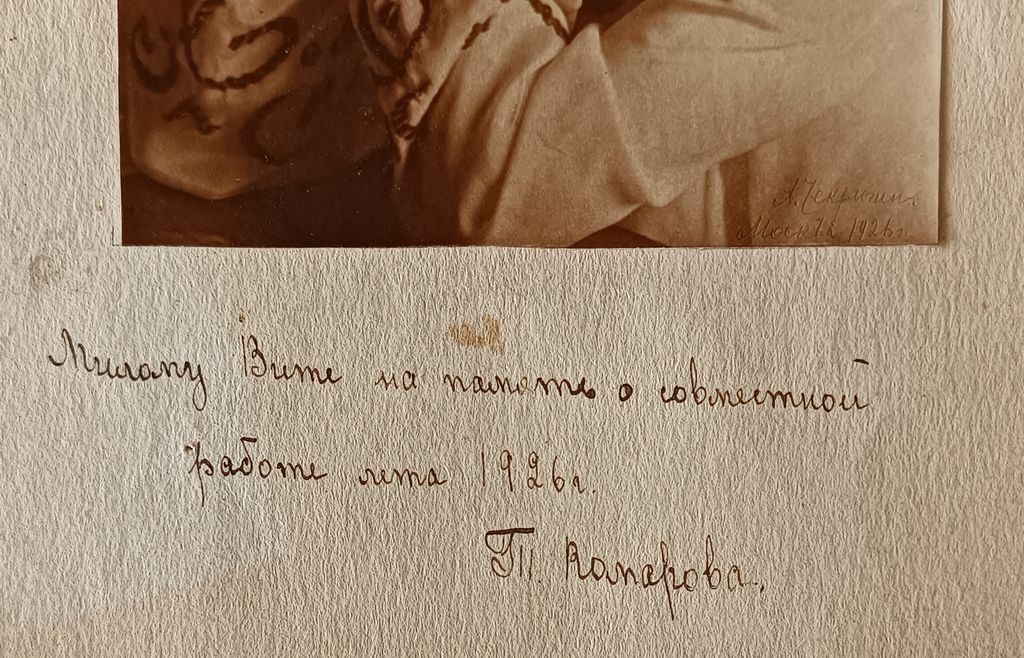 Москва 1926г.
Милому Вите на память о совместной
работе лета 1926г.
Т. Комарова.